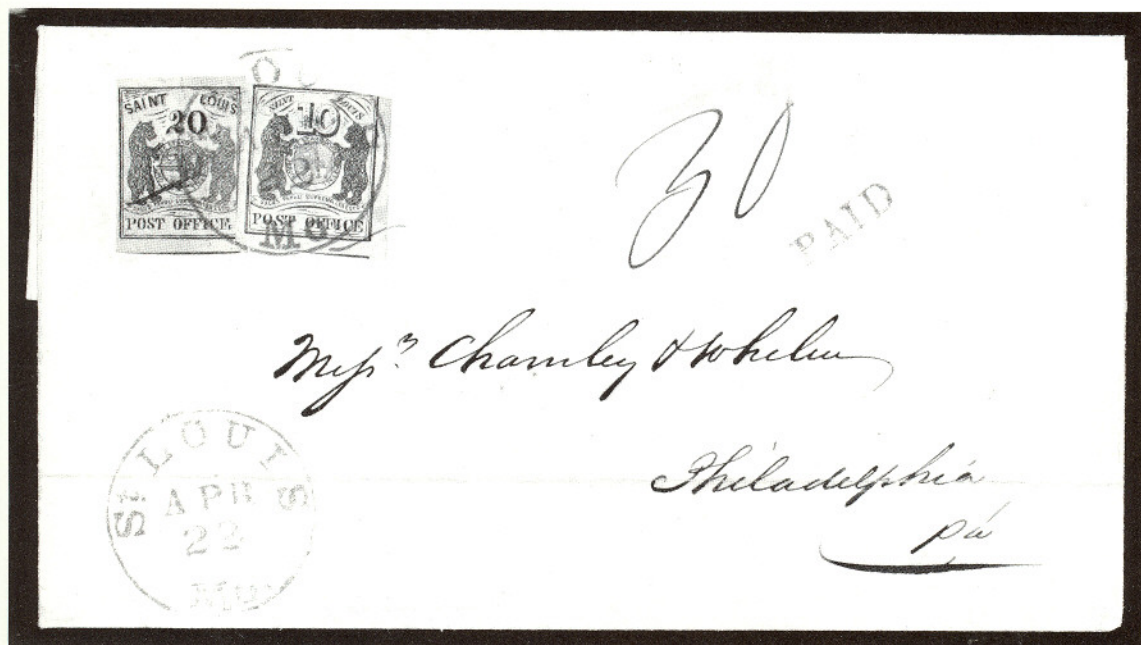 SAINT LOUIS
20
POST OFFICE.
SAINT LOUIS
10
POST OFFICE
Mo.
30
PAID
Messrs. Charnley & Whelen
Philadelphia
Pa
St. LOUIS
APR
22
Mo.